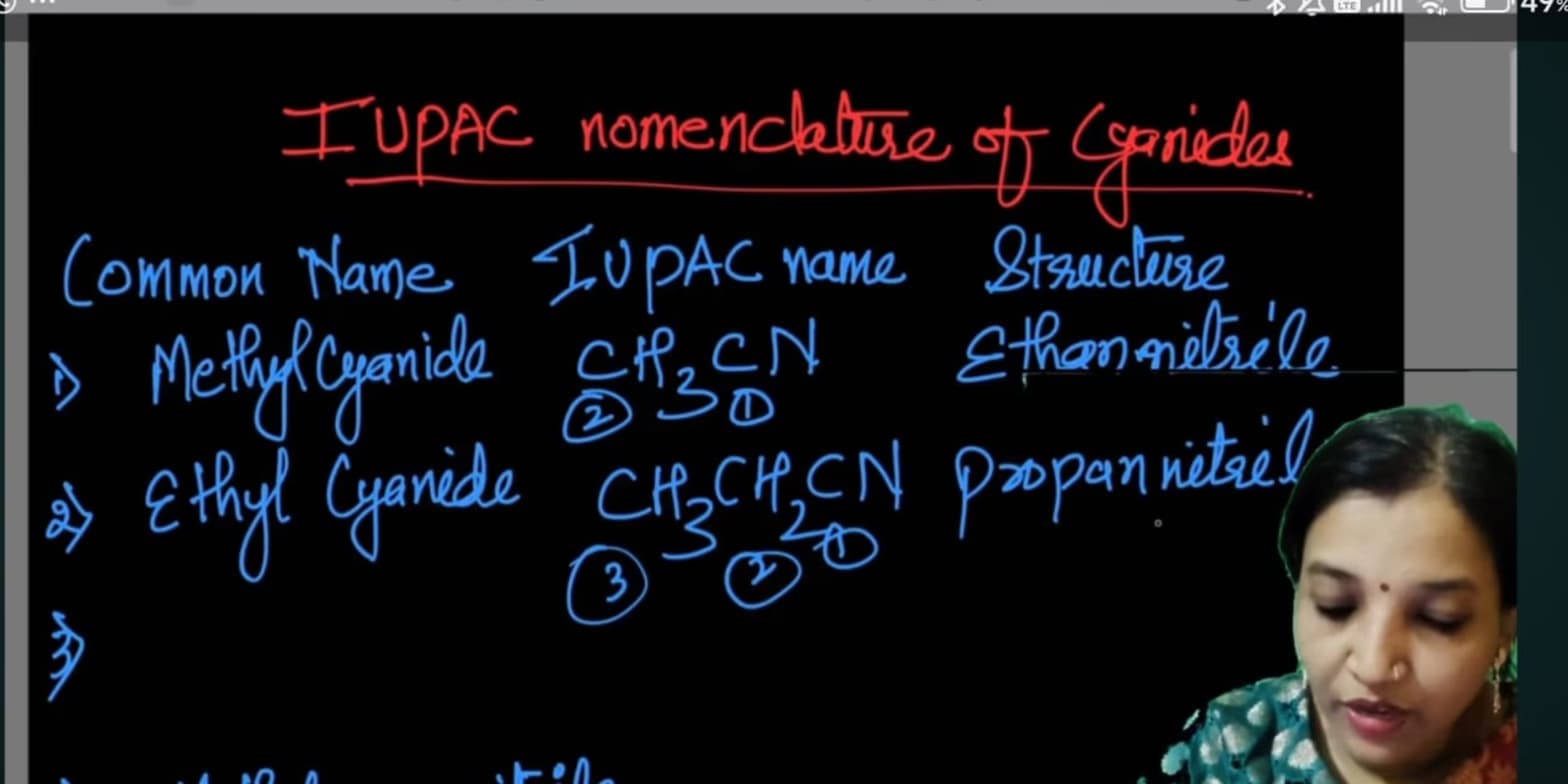 LTE 49%
IUPAC nomenclature of Cyanides
Common Name IUPAC name Structure
1) Methyl Cyanide CH3CN Ethannitrile
② ①
2) Ethyl Cyanide CH3CH2CN propannitril
③ ② ①
3)